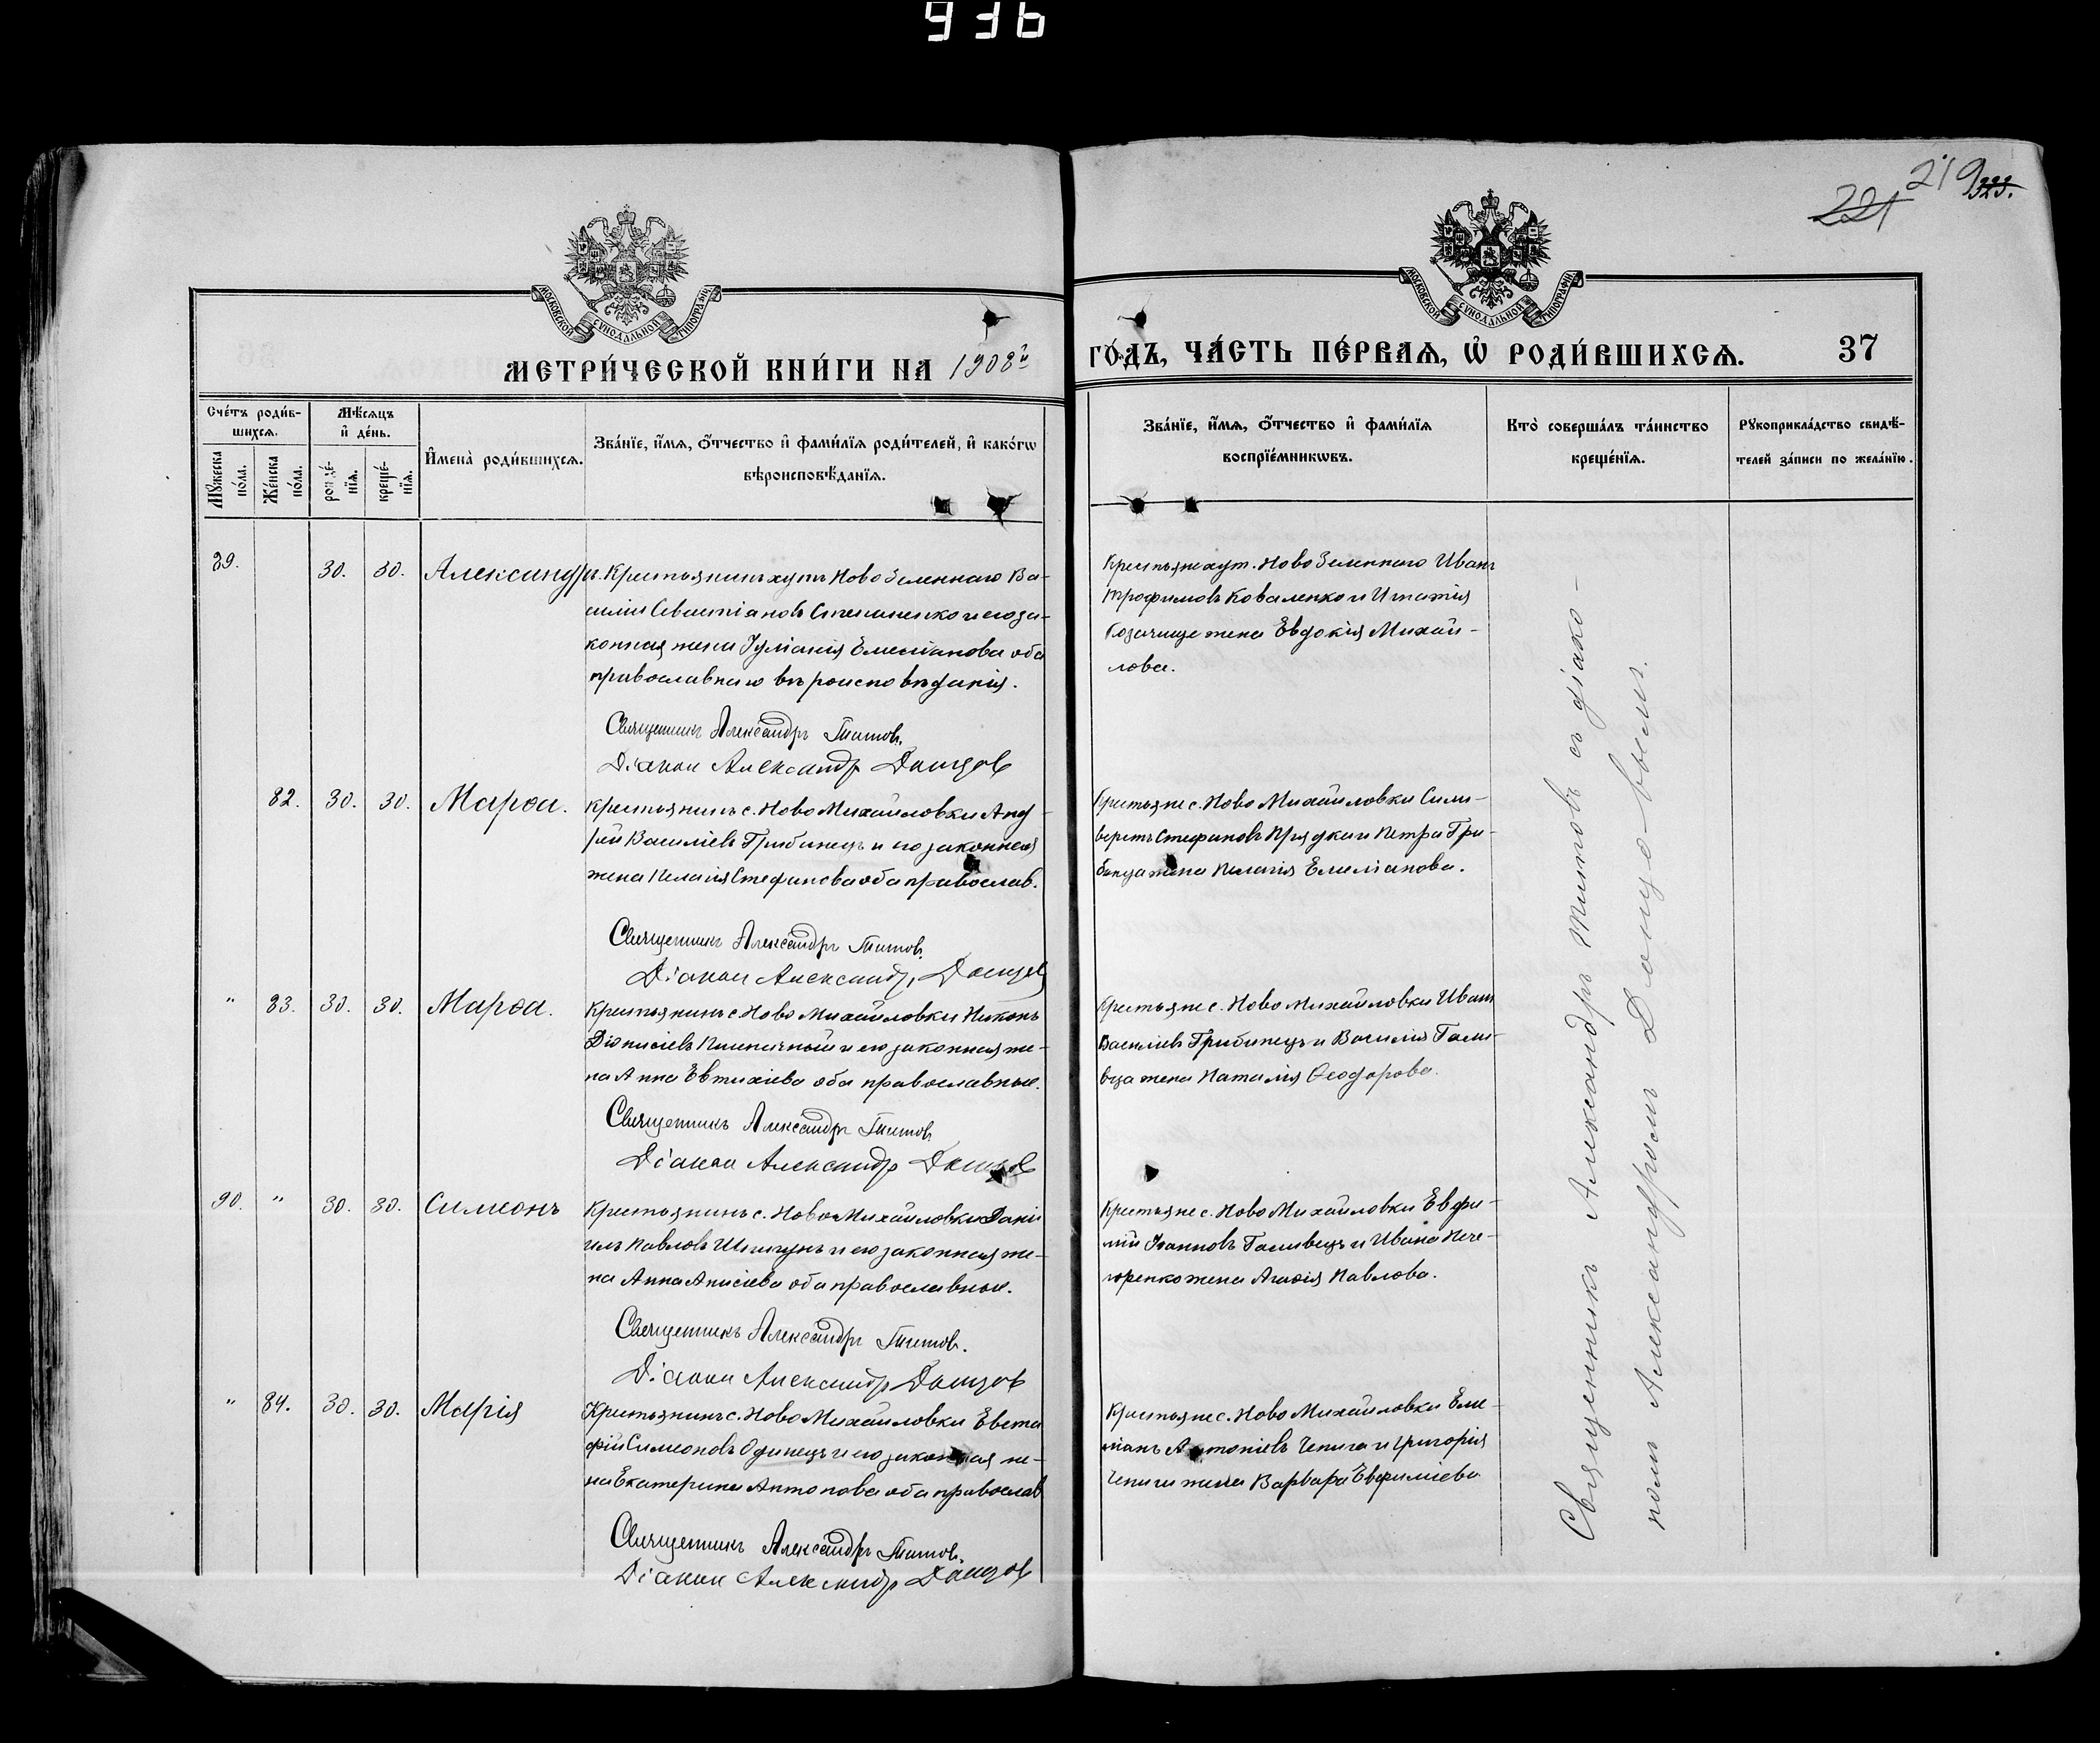 936
219
221
323.
МОСКОВСКОЙ СѴНОДАЛЬНОЙ ТИПОГРАФІИ
МОСКОВСКОЙ СѴНОДАЛЬНОЙ ТИПОГРАФІИ
МЕТРИ́ЧЕСКОЙ КНИ́ГИ НА 1908й
ГО́ДЪ, ЧА́СТЬ ПЕ́РВАЯ, Ѡ РОДИ́ВШИХСЯ. 37
Сче́тъ роди́в-
шихся.
Мѣ́сяцъ
и де́нь.
Му́жеска
по́ла.
Же́нска
по́ла.
рожде́-
нїя.
креще́-
нїя.
Имена̀ роди́вшихся.
Зва́нїе, и́мя, о́тчество и фами́лїя роди́телей, и како́гѡ
вѣроисповѣ́данїя.
Зва́нїе, и́мя, о́тчество и фами́лїя
воспрїе́мникѡвъ.
Кто̀ соверша́лъ та́инство
креще́нїя.
Рукоприкла́дство свидѣ́-
телей за́писи по жела́нїю.
89. 30. 30. Александръ. Крестьянинъ хут. Ново Зеленнаго Ва-
силій Севастіановъ Степаненко и его за-
конная жена Іуліанія Емеліанова оба
православнаго вѣроисповѣданія.
Священникъ Александръ Титов.
Діакон Александр Донцов
Крестьяне хут. Ново Зеленнаго Иванъ
Трофимовъ Коваленко и Игнатія
Козачище жена Евдокія Михай-
лова.
82. 30. 30. Марѳа. Крестьянинъ с. Ново Михайловки Анд-
рей Василіевъ Грибинецъ и его законная
жена Пелагія Стефанова оба православ.
Священникъ Александръ Титов.
Діакон Александр Донцов
Крестьяне с. Ново Михайловки Сили-
верстъ Стефановъ Прядка и Петра Гри-
бинца жена Пелагія Емеліанова.
" 83. 30. 30. Марѳа. Крестьянинъ с. Ново Михайловки Никонъ
Діонисіевъ и его законная же-
на Анна Евтихіева оба православные.
Священникъ Александръ Титов.
Діакон Александр Донцов
Крестьяне с. Ново Михайловки Иванъ
Василіевъ Грибинецъ и Василія Гали-
вца жена Наталія Ѳеодорова.
90. " 30. 30. Симеонъ Крестьянинъ с. Ново Михайловки Дані
илъ Павловъ и его законная же-
на Анна Анисіева оба православные.
Священникъ Александръ Титов.
Діакон Александр Донцов
Крестьяне с. Ново Михайловки Евфи-
мій Іоанновъ Галивецъ и Ивана Пече-
жена Агафія Павлова.
" 84. 30. 30. Марія Крестьянинъ с. Ново Михайловки Евста
фій Симеоновъ Одинецъ и его законная же-
на Екатерина Антонова оба православ
Священникъ Александръ Титов.
Діакон Александр Донцов
Крестьяне с. Ново Михайловки Еме-
ліанъ Антоніевъ Чепига и Григорія
Чепиги жена Варвара Евфиміева
Священникъ Александръ Титовъ съ діако-
номъ Александромъ Донцовымъ.